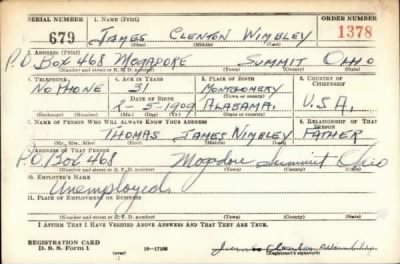 SERIAL NUMBER 1. NAME (Print) ORDER NUMBER
679 JAMES CLENTON WIMBLEY 1378
(First) (Middle) (Last)
2. ADDRESS (Print)
P.O BOX 468 MOGADORE SUMMIT OHIO
(Number and street or R. F. D. number) (Town) (County) (State)
3. TELEPHONE 4. AGE IN YEARS 5. PLACE OF BIRTH 6. COUNTRY OF CITIZENSHIP
NO PHONE 31 MONTGOMERY
DATE OF BIRTH (Town or county)
8-5-1909 ALABAMA. U.S.A.
(Exchange) (Number) (Mo.) (Day) (Yr.) (State or country)
7. NAME OF PERSON WHO WILL ALWAYS KNOW YOUR ADDRESS 8. RELATIONSHIP OF THAT PERSON
THOMAS JAMES WIMBLEY FATHER
(Mr., Mrs., Miss) (First) (Middle) (Last)
9. ADDRESS OF THAT PERSON
P.O Box 468 Mogadore Summit Ohio
(Number and street or R. F. D. number) (Town) (County) (State)
10. EMPLOYER'S NAME
Unemployed
11. PLACE OF EMPLOYMENT OR BUSINESS
(Number and street or R. F. D. number) (Town) (County) (State)
I AFFIRM THAT I HAVE VERIFIED ABOVE ANSWERS AND THAT THEY ARE TRUE.
REGISTRATION CARD
D. S. S. Form 1 (over) 16-17105 Clenton Wimbley
(Registrant's signature)